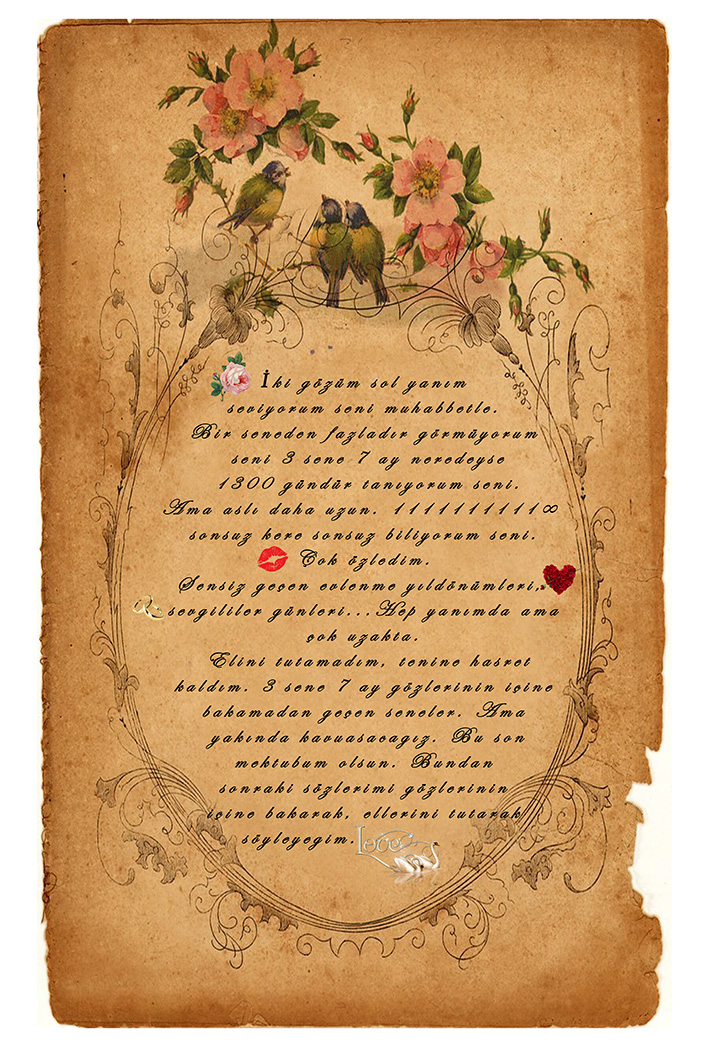 İki gözüm sol yanım
seviyorum seni muhabbetle.
Bir seneden fazladır görmüyorum
seni 3 sene 7 ay neredeyse
1300 gündür tanıyorum seni.
Ama aslı daha uzun. 1111111111∞
sonsuz kere sonsuz biliyorum seni.
Çok özledim.
Sensiz geçen evlenme yıldönümleri,
sevgililer günleri...Hep yanımda ama
çok uzakta.
Elini tutamadım, tenine hasret
kaldım. 3 sene 7 ay gözlerinin içine
bakamadan geçen seneler. Ama
yakında kavuasacagız. Bu son
mektubum olsun. Bundan
sonraki sözlerimi gözlerinin
içine bakarak, ellerini tutarak
söyleyegim.
Love